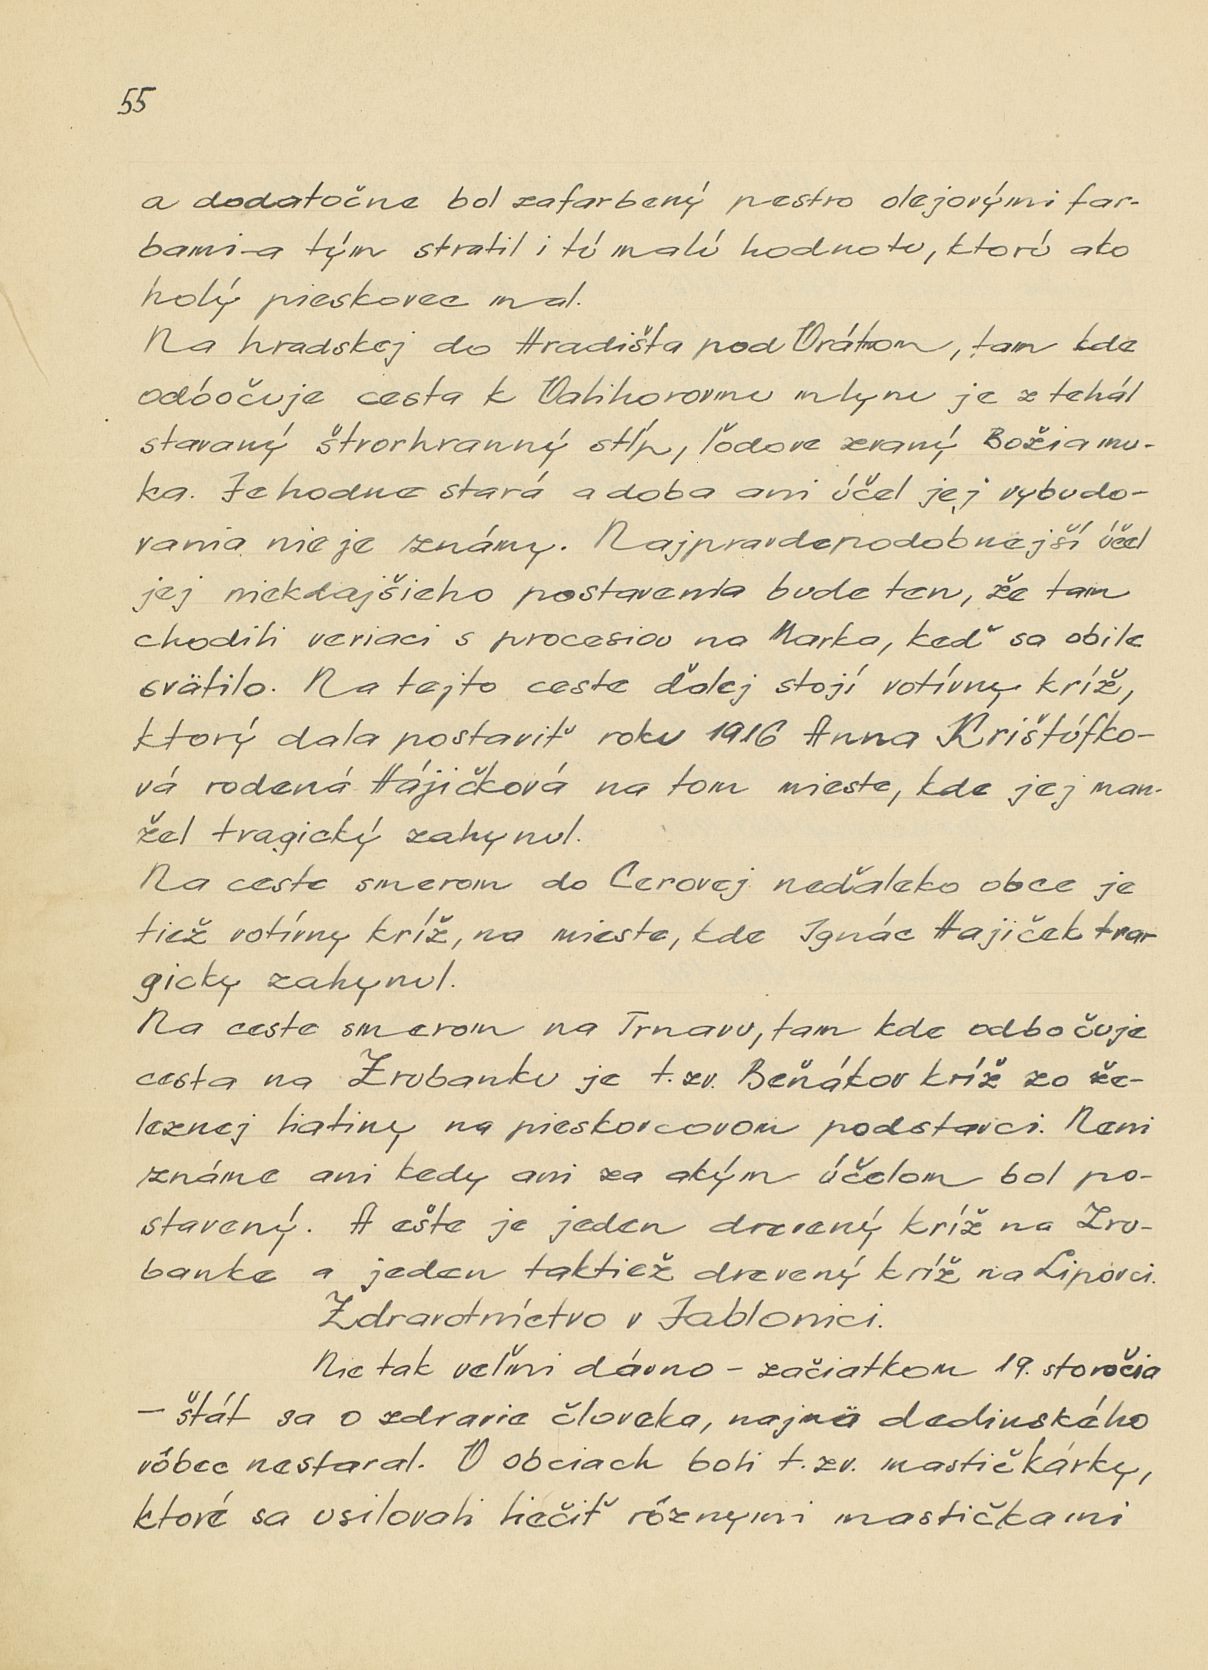 55
a dodatočne bol zafarbený pestro olejovými far-
bami-a tým stratil i tú malú hodnotu, ktorú ako
holý pieskovec mal.
Na hradskej do Hradišťa pod Vrátnom, tam kde
odbočuje cesta k Valihorovmu mlynu je z tehál
stavaný štvorhranný stĺp, ľudove zvaný Božia mu-
ka. Je hodne stará a doba ani účel jej vybudo-
vania nie je známy. Najpravdepodobnejší účel
jej niekdajšieho postavenia bude ten, že tam
chodili veriaci s procesiou na Marka, keď sa obile
svätilo. Na tejto ceste ďalej stojí votívny kríž,
ktorý dala postaviť roku 1916 Anna Krištúfko-
vá rodená Hájičková na tom mieste, kde jej man-
žel tragický zahynul.
Na ceste smerom do Cerovej neďaleko obce je
tiež votívny kríž, na mieste, kde Ignác Hajiček tra-
gicky zahynul.
Na ceste smerom na Trnavu, tam kde odbočuje
cesta na Zrubanku je t.zv. Beňákov kríž zo že-
leznej liatiny na pieskovcovom podstavci. Neni
známe ani kedy ani za akým účelom bol po-
stavený. A ešte je jeden drevený kríž na Zru-
banke a jeden taktiež drevený kríž na Lipovci.
Zdravotníctvo v Jablonici.
Nie tak veľmi dávno - začiatkom 19. storočia
- štát sa o zdravie človeka, najmä dedinského
vôbec nestaral. V obciach boli t.zv. mastičkárky,
ktoré sa usilovali liečiť rôznymi mastičkami